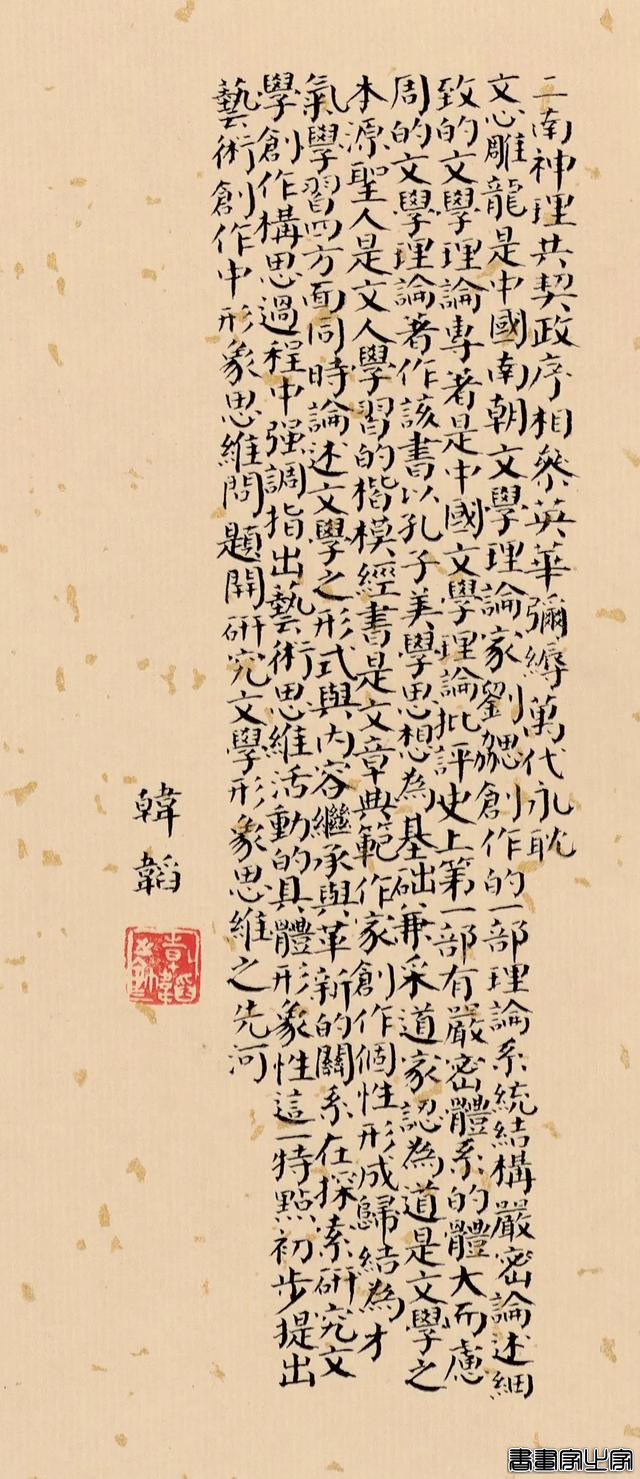 二南神理共契政序相參英華彌縟萬代永耽
文心雕龍是中國南朝文學理論家劉勰創作的一部理論系統結構嚴密論述細
致的文學理論專著是中國文學理論批評史上第一部有嚴密體系的體大而慮
周的文學理論著作該書以孔子美學思想為基础兼采道家認為道是文學之
本源聖人是文人學習的楷模經書是文章典範作家創作個性形成歸結為才
氣學習四方面同時論述文學之形式與内容繼承與革新的關系在探索研究文
學創作構思過程中强調指出藝術思維活動的具體形象性這一特點初步提出
藝術創作中形象思維問題開研究文學形象思維之先河
韓韜
書畫家之家